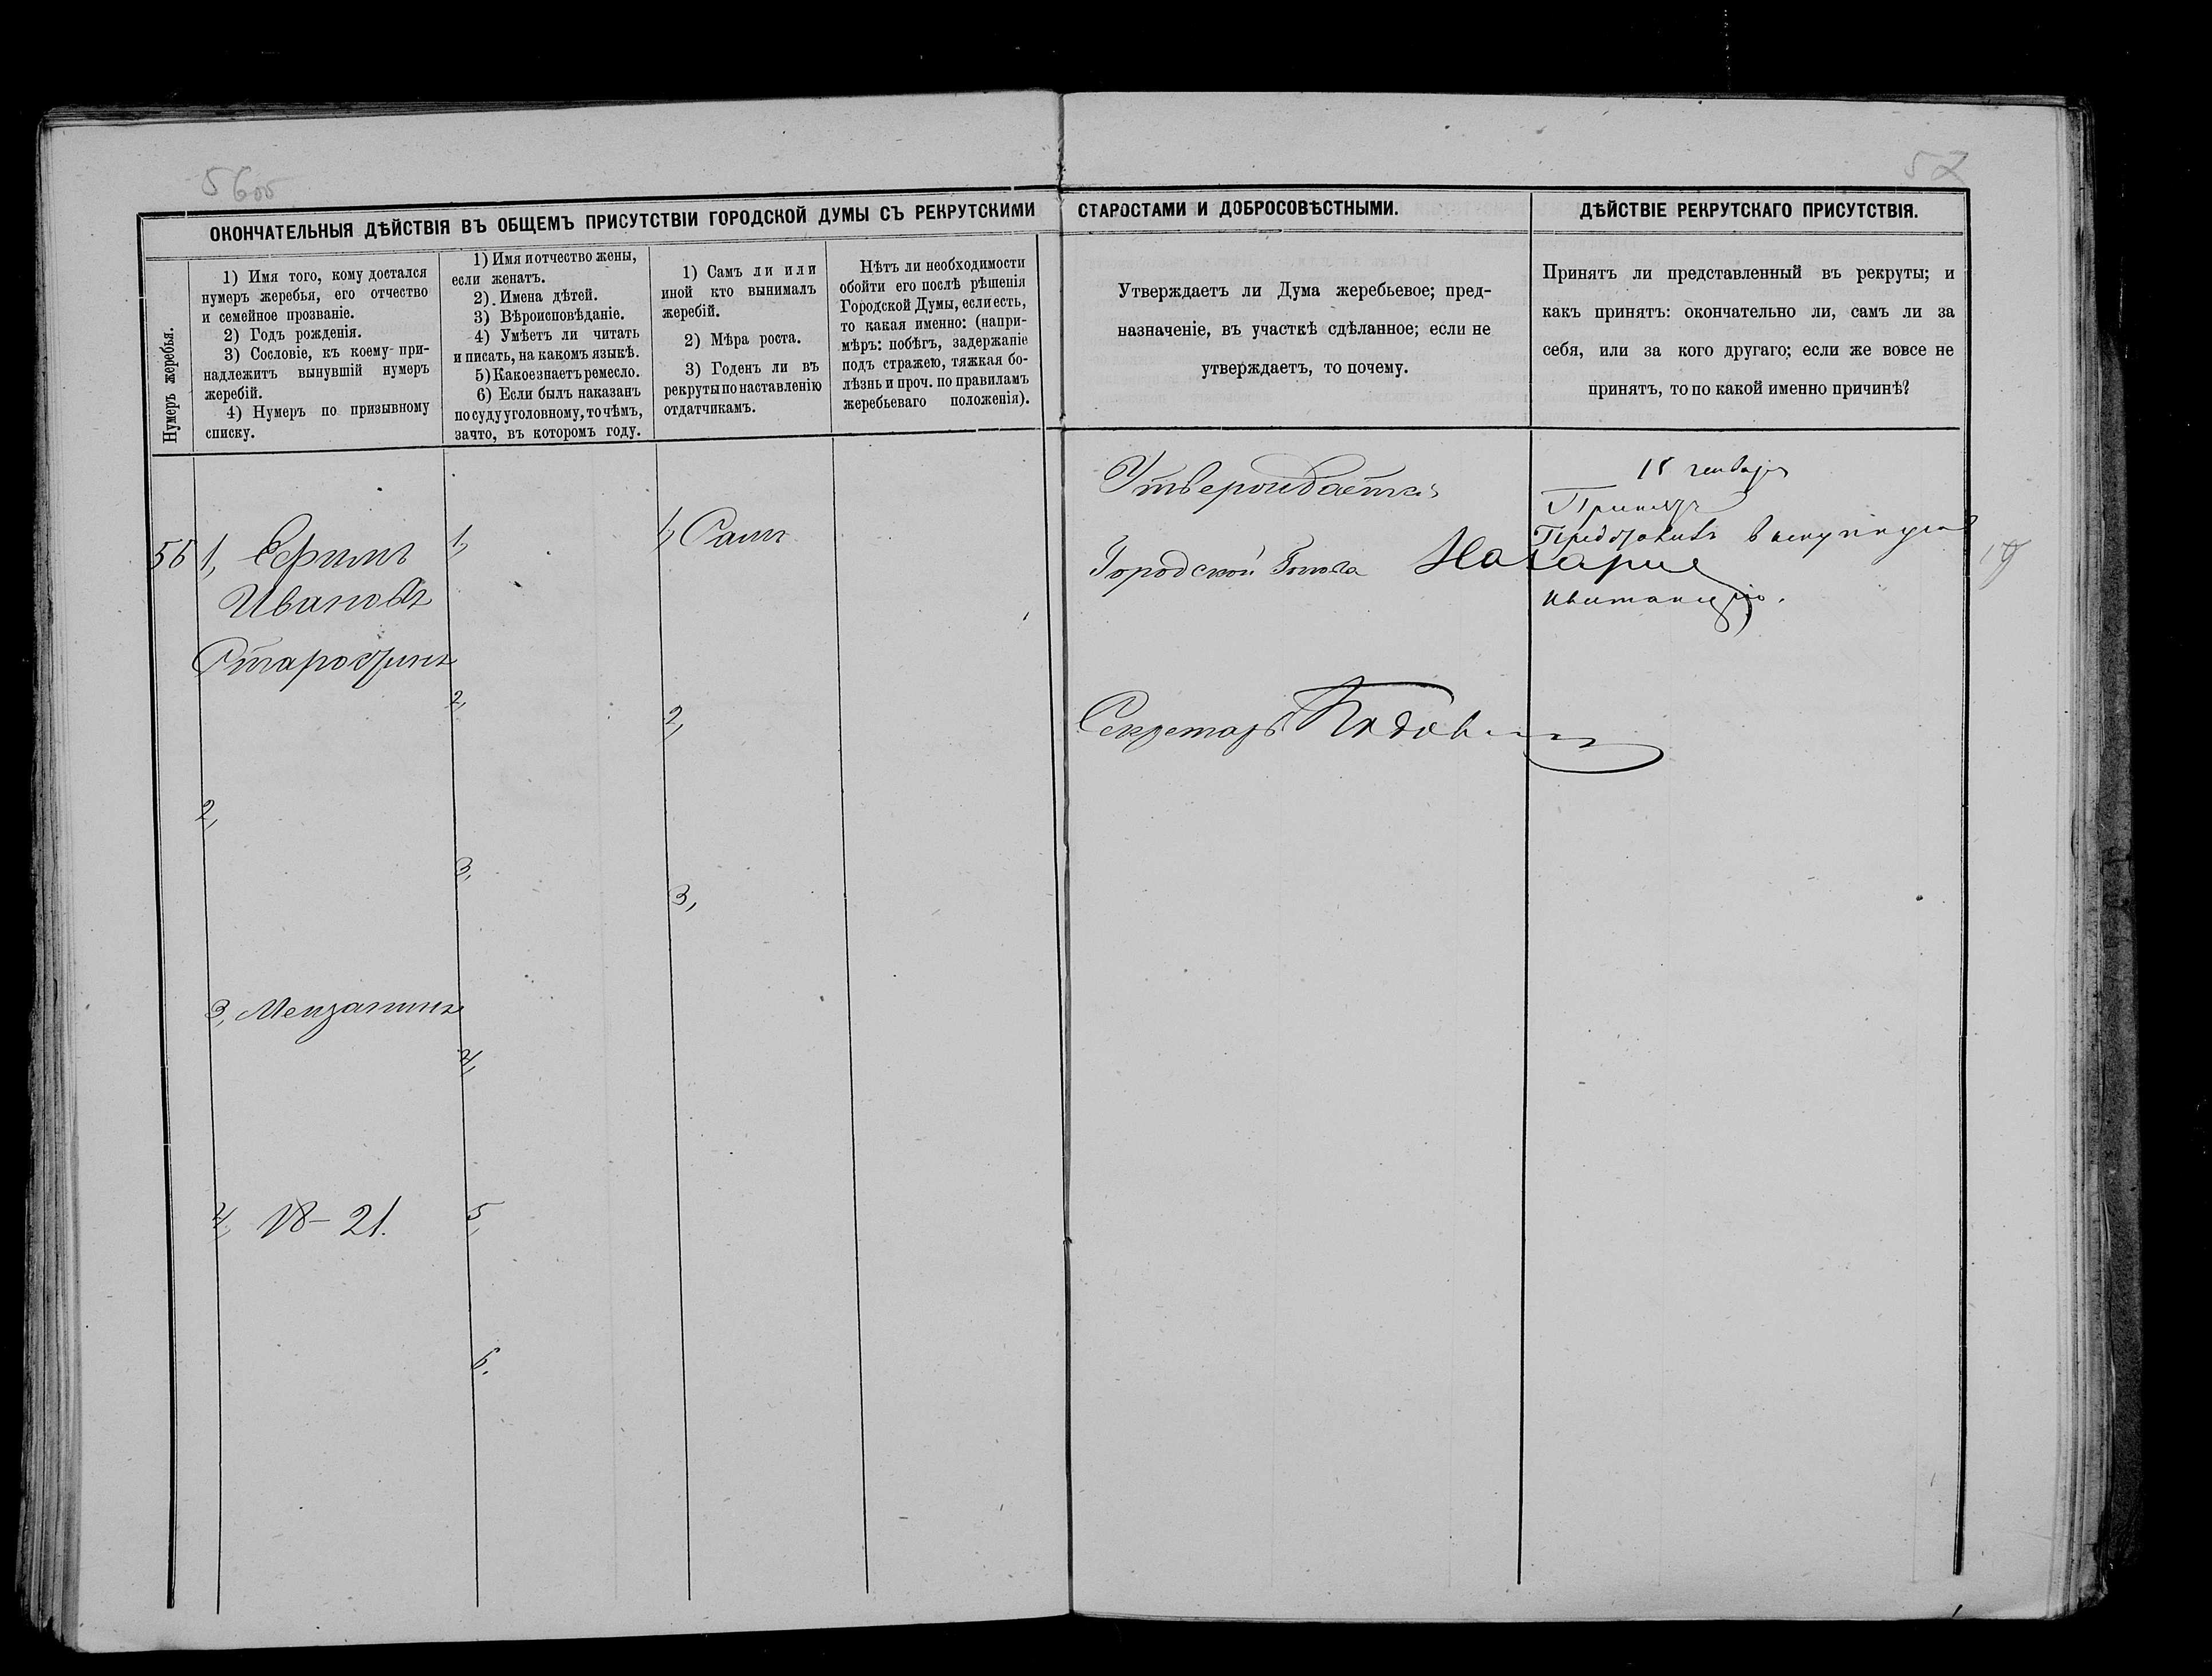 56 об
57
ОКОНЧАТЕЛЬНЫЯ ДѢЙСТВІЯ ВЪ ОБЩЕМЪ ПРИСУТСТВІИ ГОРОДСКОЙ ДУМЫ СЪ РЕКРУТСКИМИ СТАРОСТАМИ И ДОБРОСОВѢСТНЫМИ.
ДѢЙСТВІЕ РЕКРУТСКАГО ПРИСУТСТВІЯ.
Нумеръ жеребья.
1) Имя того, кому достался
нумеръ жеребья, его отчество
и семейное прозваніе.
2) Годъ рожденія.
3) Сословіе, къ коему при-
надлежитъ вынувшій нумеръ
жеребій.
4) Нумеръ по призывному
списку.
1) Имя и отчество жены,
если женатъ.
2) Имена дѣтей.
3) Вѣроисповѣданіе.
4) Умѣетъ ли читать
и писать, на какомъ языкѣ.
5) Какое знаетъ ремесло.
6) Если былъ наказанъ
по суду уголовному, то чѣмъ,
зачто, въ которомъ году.
1) Самъ ли или
иной кто вынималъ
жеребій.
2) Мѣра роста.
3) Годенъ ли въ
рекруты по наставленію
отдатчикамъ.
Нѣтъ ли необходимости
обойти его послѣ рѣшенія
Городской Думы, если есть,
то какая именно: (напри-
мѣръ: побѣгъ, задержаніе
подъ стражею, тяжкая бо-
лѣзнь и проч. по правиламъ
жеребьеваго положенія).
Утверждаетъ ли Дума жеребьевое; пред-
назначеніе, въ участкѣ сдѣланное; если не
утверждаетъ, то почему.
Принятъ ли представленный въ рекруты; и
какъ принятъ: окончательно ли, самъ ли за
себя, или за кого другаго; если же вовсе не
принятъ, то по какой именно причинѣ?
1, Ефимъ
Ивановъ
Старостинъ
2,
3, Мещанинъ
4, 18-21.
1,
2,
3,
4,
5,
6.
1, Самъ
2,
3,
Утверждаетъ
Городской Голова
Секретарь
18 генваря
Принятъ
Представивъ выкупную
квитанцію.